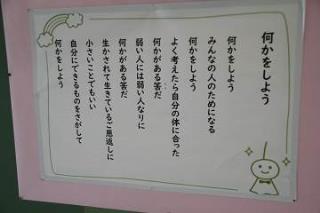 何かをしよう
何かをしよう
みんなの人のためになる
何かをしよう
よく考えたら自分の体に合った
何かがある筈だ
弱い人には弱い人なりに
何かがある筈だ
生かされて生きているご恩返しに
小さいことでもいい
自分にできるものをさがして
何かをしよう